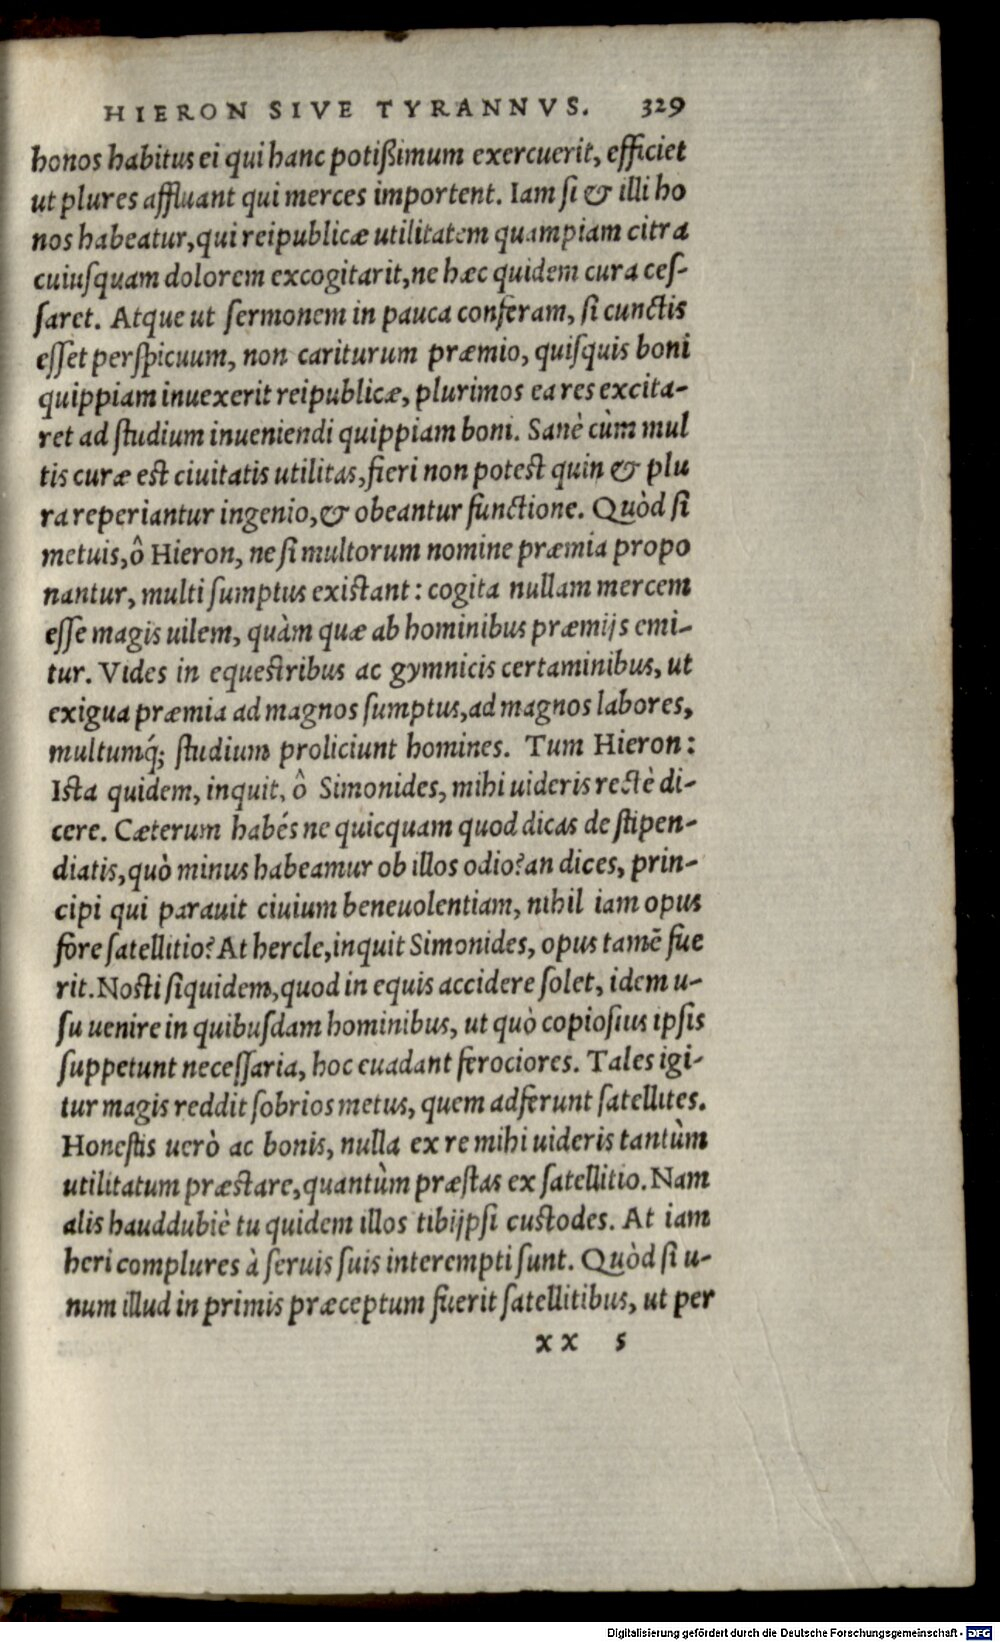 HIERON SIVE TYRANNVS. 329
honos habitus ei qui hanc potißimum exercuerit, efficiet
ut plures affluant qui merces importent. Iam si & illi ho
nos habeatur, qui reipublicæ utilitatem quampiam citra
cuiusquam dolorem excogitarit, ne hæc quidem cura ces-
saret. Atque ut sermonem in pauca conferam, si cunctis
esset perspicuum, non cariturum præmio, quisquis boni
quippiam inuexerit reipublicæ, plurimos ea res excita-
ret ad studium inueniendi quippiam boni. Sanè cùm mul
tis curæ est ciuitatis utilitas, fieri non potest quin & plu
ra reperiantur ingenio, & obeantur functione. Quòd si
metuis, ô Hieron, ne si multorum nomine præmia propo
nantur, multi sumptus existant: cogita nullam mercem
esse magis uilem, quàm quæ ab hominibus præmijs emi-
tur. Vides in equestribus ac gymnicis certaminibus, ut
exigua præmia ad magnos sumptus, ad magnos labores,
multumq́; studium proliciunt homines. Tum Hieron:
Ista quidem, inquit, ô Simonides, mihi uideris rectè di-
cere. Cæterum habés ne quicquam quod dicas de stipen-
diatis, quò minus habeamur ob illos odio? an dices, prin-
cipi qui parauit ciuium beneuolentiam, nihil iam opus
fore satellitio? At hercle, inquit Simonides, opus tamẽ fue
rit. Nosti siquidem, quod in equis accidere solet, idem u-
su uenire in quibusdam hominibus, ut quò copiosius ipsis
suppetunt necessaria, hoc euadant ferociores. Tales igi-
tur magis reddit sobrios metus, quem adferunt satellites.
Honestis uerò ac bonis, nulla ex re mihi uideris tantùm
utilitatum præstare, quantùm præstas ex satellitio. Nam
alis hauddubiè tu quidem illos tibijpsi custodes. At iam
heri complures à seruis suis interempti sunt. Quòd si u-
num illud in primis præceptum fuerit satellitibus, ut per
xx 5
Digitalisierung gefördert durch die Deutsche Forschungsgemeinschaft - DFG